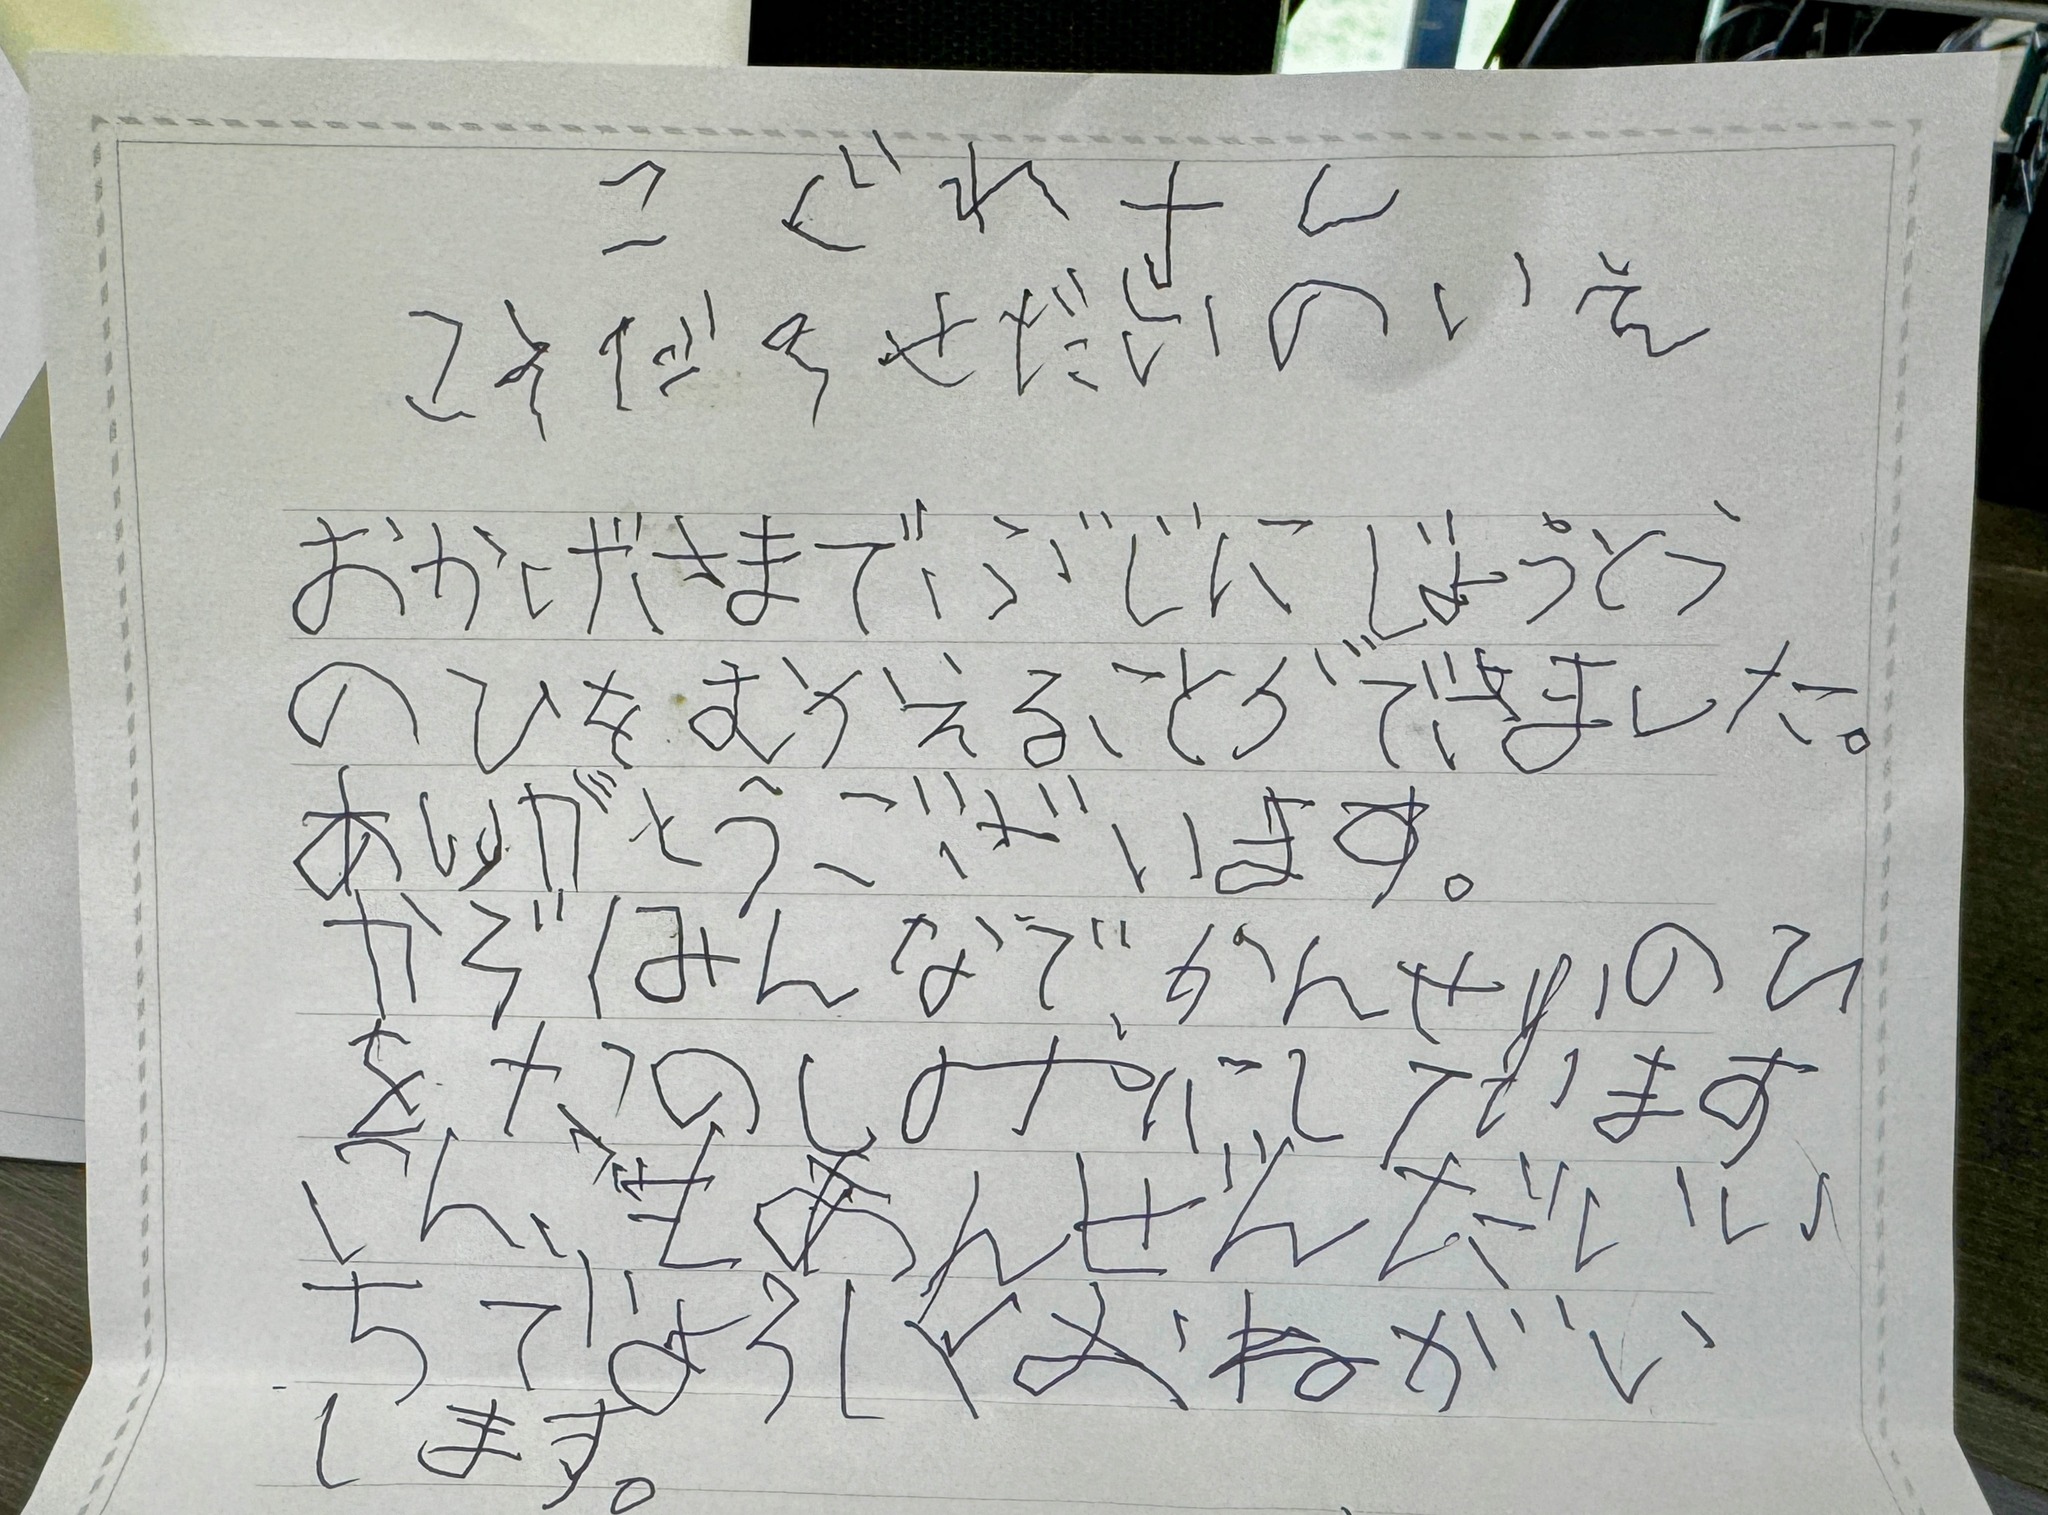 こぐれさし
こまだ せだいのいえ
おかげさまでぶじにじょうとう
のひをむかえることができました。
ありがとうございます。
かぞくみんなでかんせいのひ
をたのしみにしています
こんごもあんぜんだいい
ちでよろしくおねがい
します。